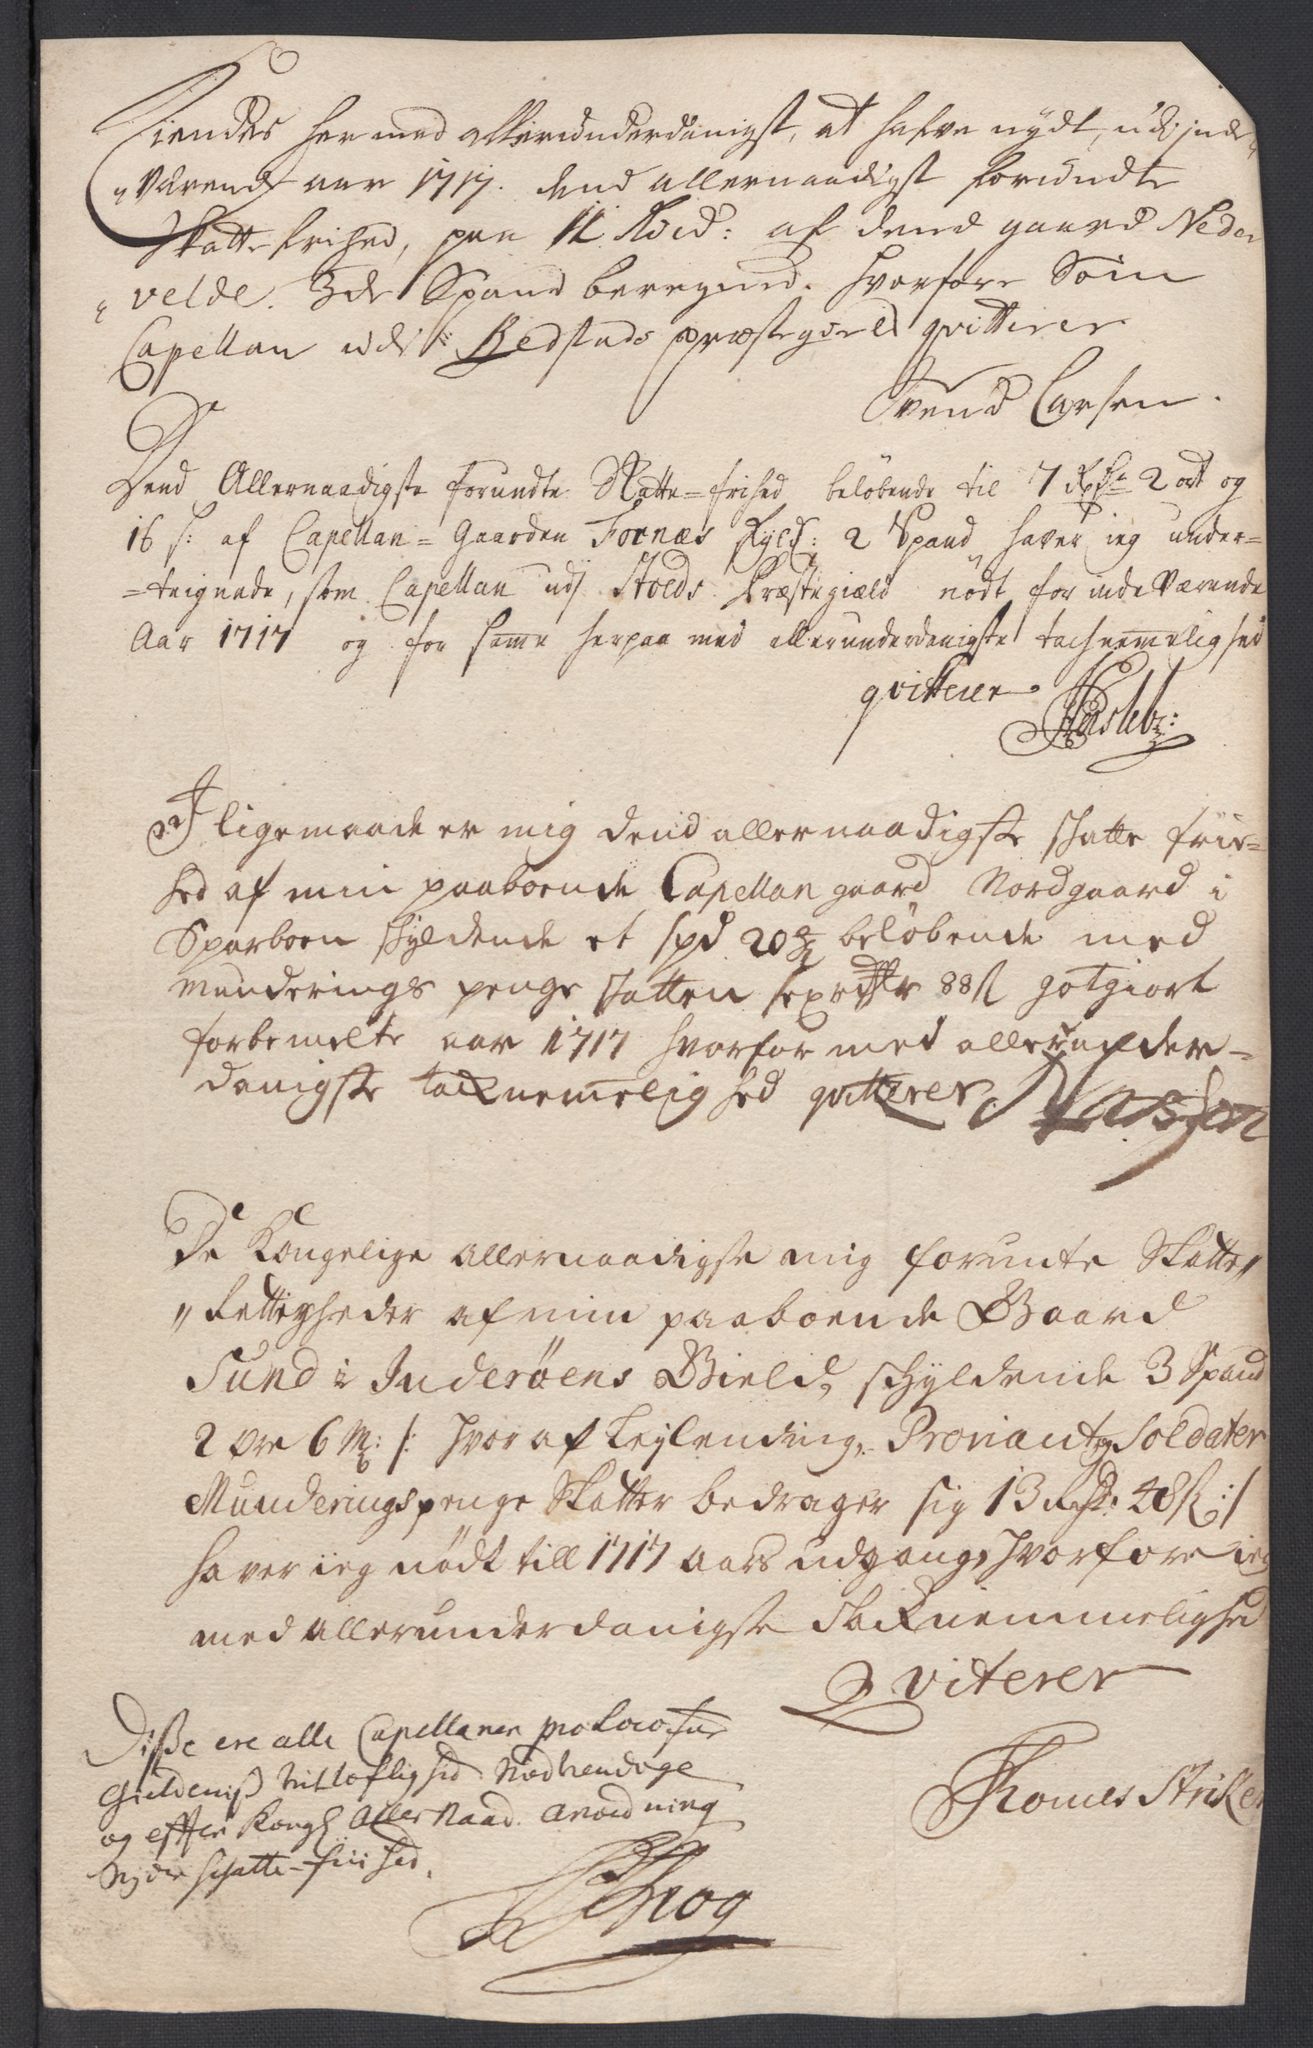 Kiendes her med allerunderdanigst, at hafve nydt, udj inde„
„Værende aar 1717. dend allernaadigst forundte
Skatte frihed, paa 11 Rixd: af dend gaard Neder
„velde. 3de Spand beregned. hvorfore Som
Capellan udi Bedstads præstegield qvitterer
Svend Larsen.
Dend Allernaadigste forundte Skatte=frihed beløbende til 7 Rdr 2 ort og
16 s: af Capellan=Gaarden Fornæs Skyld: 2 Spand haver ieg under=
=teignede, som Capellan udj Stods Præstegiæld nødt for inde Værende
Aar 1717 og for samme herpaa med allerunderdanigste tachnemelighed
qvitterer
I ligemaade er mig dend allernaadigste skatte frie=
hed af min paaboende Capellan gaard Nordgaard i
Sparboen skyldende et spd 20 beløbende med
Munderings penge skatten sex rdlr 88 s gotgiort
forbemelte aar 1717 hvorfor med allerunder=
danigste tacknemelighed qvitterer
De Kongelige allernaadigste mig forunte Skatte„
„Rettigheder af min paaboende Gaard
Sund i Inderøens Gield, schyldende 3 Spand
2 øre 6 Mk: /: hvor af Leylending, Proviant og Soldater
Munderings penge Skatter bedrager sig 13 rdr. 48 s :/
haver ieg nødt till 1717 aars udgang, hvorfore ieg
med allerunderdanigste Tacknemmelighed
Qviterer
Thomes Stricker
Disse ere alle Capellaner pro loco,
og efter Kongl Aller Naad. anordning
Nyder schatte-friihed.